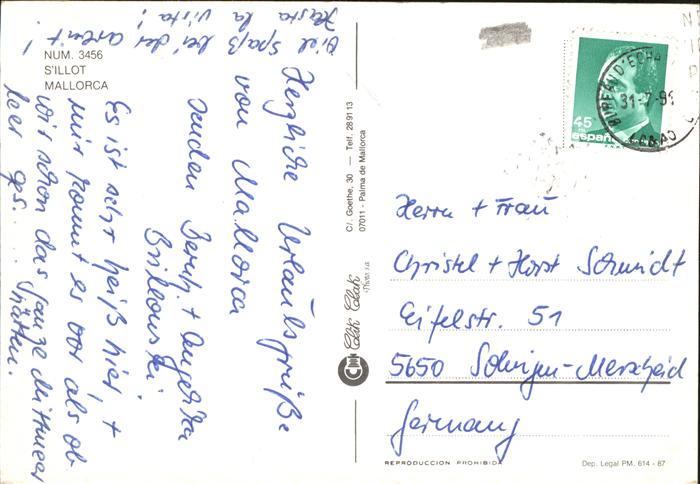 NUM. 3456
S'ILLOT
MALLORCA
Herzliche Urlaubsgrüße
von Mallorca
senden Bernh. + Angelika
Es ist sehr heiß hier, +
mir kommt es vor als ob
wir schon das ganze Mittmeer
leer ges... hätten.
Viel Spaß bei der Arbeit!
Hasta la vista!
C/. Goethe, 30 — Telf. 28 91 13
07011 - Palma de Mallorca
Clik Clak
45
españa
31-7-9
Herrn + Frau
Christel + Horst Schmidt
Eifelstr. 51
5650 Solingen-Merscheid
Germany
REPRODUCCION PROHIBIDA
Dep. Legal PM. 614 - 87